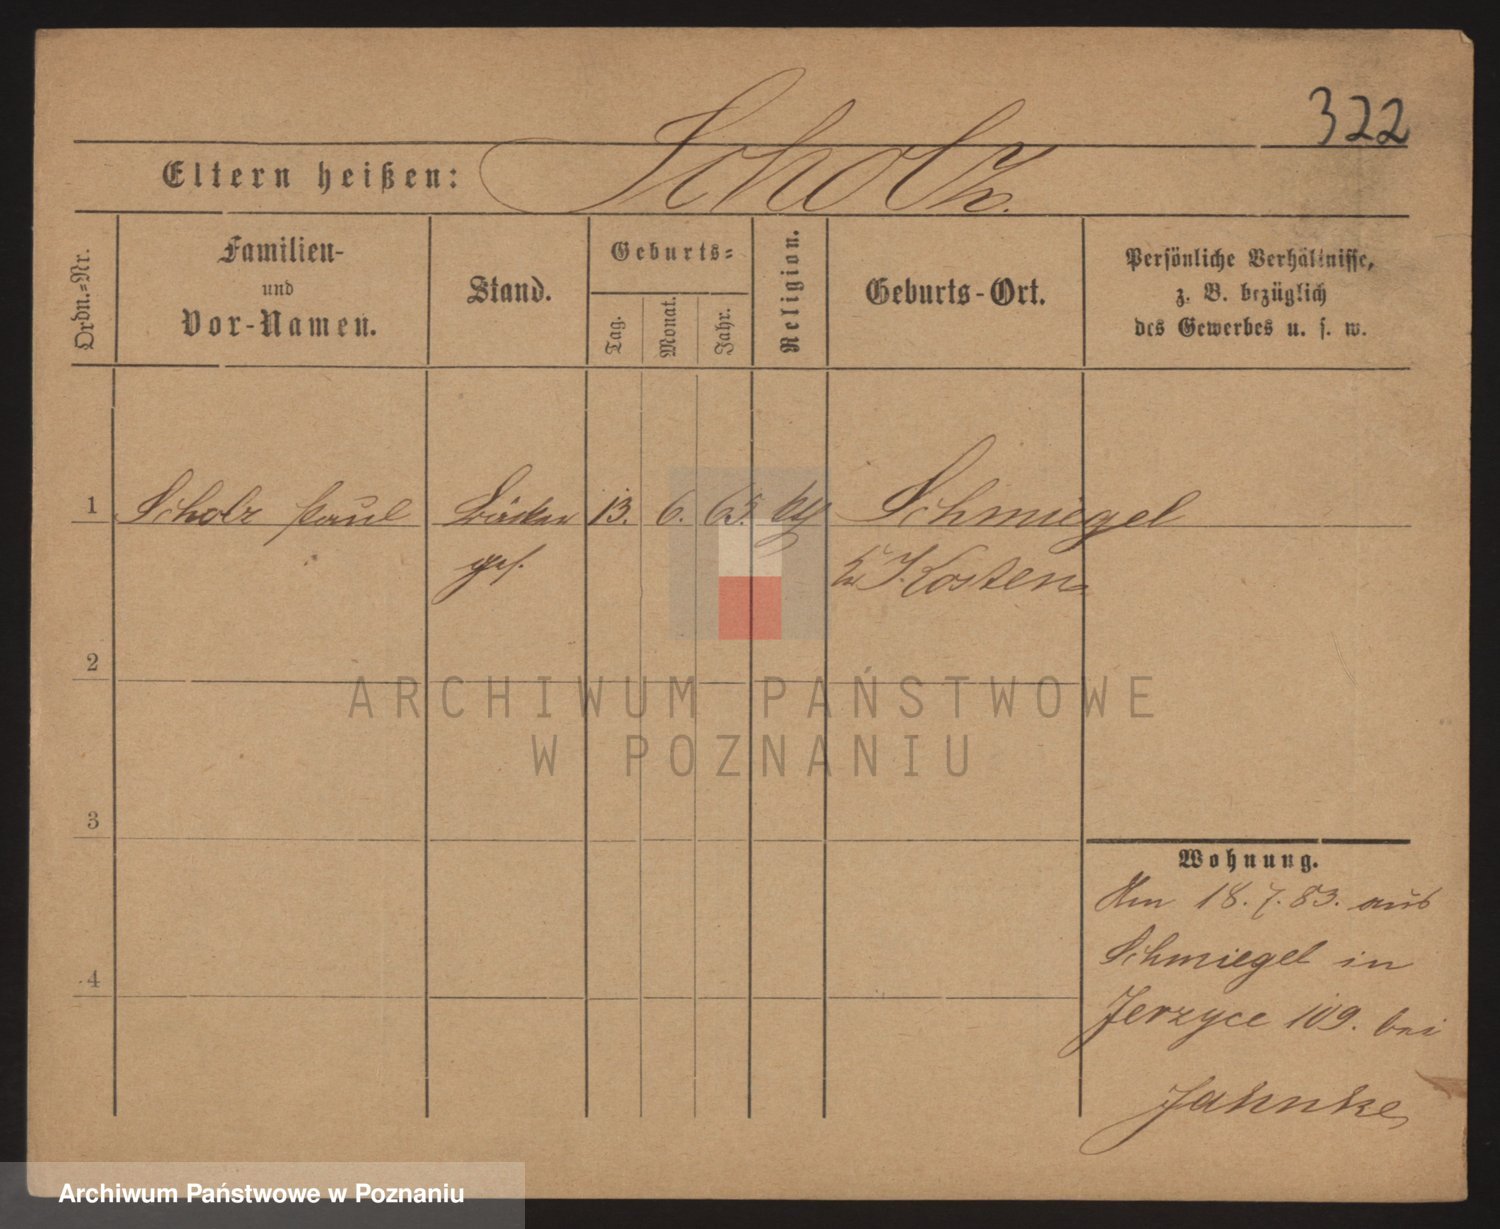 322
Eltern heißen: Scholz.
Ordn.-Nr.
Familien-
und
Vor-Namen.
Stand.
Geburts-
Tag.
Monat.
Jahr.
Religion.
Geburts-Ort.
Persönliche Verhältnisse,
z. B. bezüglich
des Gewerbes u. s. w.
1 Scholz Paul Bäcker 13. 6. 65. Schmiegel
ges. Kr. Kosten
2
ARCHIWUM PAŃSTWOWE
W POZNANIU
3
Wohnung.
Am 18. 7. 83. aus
Schmiegel in
4
Jerzyce 109. bei
Jahnke
Archiwum Państwowe w Poznaniu